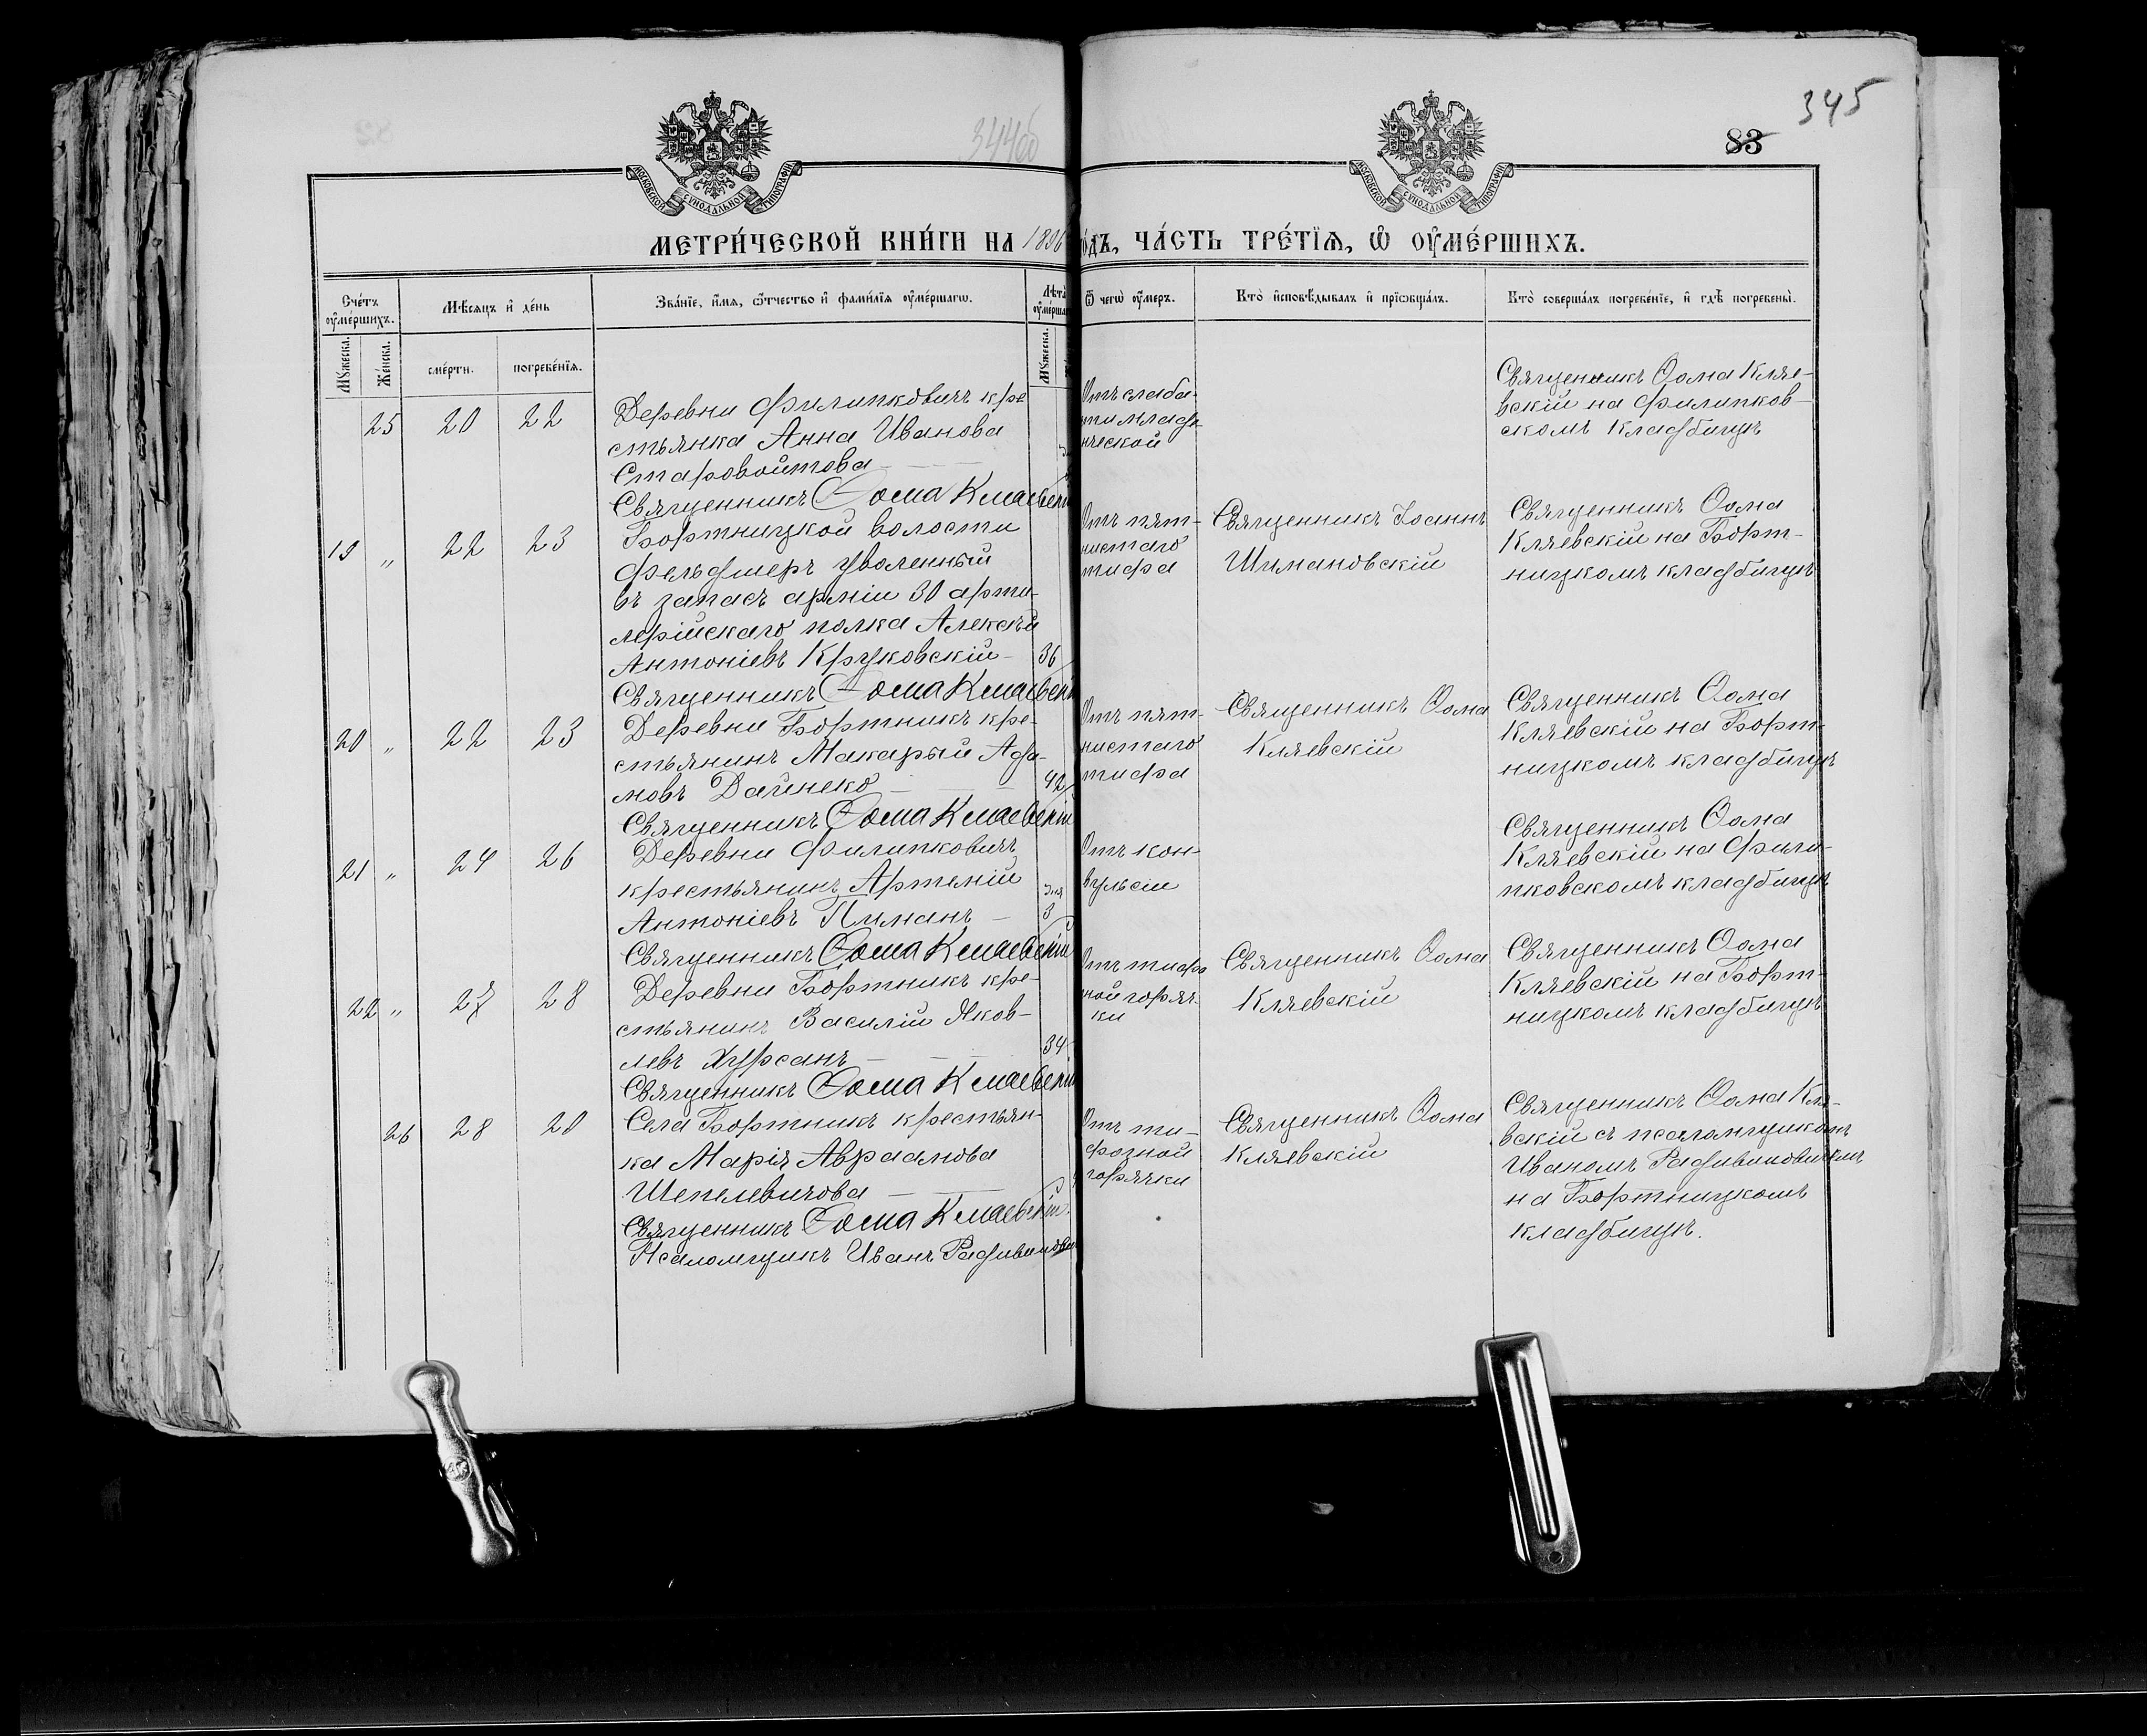 344об
345
83
МОСКОВСКОЙ СѴНОДАЛЬНОЙ ТИПОГРАФІИ
МОСКОВСКОЙ СѴНОДАЛЬНОЙ ТИПОГРАФІИ
МЕТРИ́ЧЕСКОЙ КНИ́ГИ НА 1896
О́ДЪ, ЧА́СТЬ ТРЕ́ТІѦ, Ѡ ОУ҆МЕ́РШИХЪ.
Сче́тъ оу҆ме́ршихъ.
Мѣ́сяцъ и҆ де́нь
Зва́нїе, и҆́мя, ѻ҆́тчество и҆ фами́лїя оу҆ме́ршагѡ.
Лѣта̀ оу҆ме́рша
Ѿ чегѡ̀ оу҆́меръ.
Кто̀ и҆сповѣ́дывалъ и҆ прїѡбща́лъ.
Кто̀ соверша́лъ погребе́нїе, и҆ гдѣ̀ погребены̀.
Мꙋ́жеска.
Же́нска.
сме́рти.
погребе́нїя.
Мꙋ́жеска.
25 20 22
Деревни Филипковичъ кре
стьянка Анна Иванова
Старовойтова
Священникъ Ѳома Кляевскій
Отъ слабо-
сти младе-
нческой
Священникъ Ѳома Кляе-
вскій на Филипков-
скомъ кладбищѣ
19 " 22 23
Бортницкой волости
фельдшеръ уволенный
въ запасъ арміи 30 арти-
лерійскаго полка Алексѣй
Антоніевъ Круковскій 36
Священникъ Ѳома Кляевскій
Отъ пят-
нистаго
тифа
Священникъ Іоаннъ
Шимановскій
Священникъ Ѳома
Кляевскій на Борт-
ницкомъ кладбищѣ
20 " 22 23
Деревни Бортникъ кре-
стьянинъ Макарый Ада-
мовъ Дайнеко 42
Священникъ Ѳома Кляевскій
Отъ пят-
нистаго
тифа
Священникъ Ѳома
Кляевскій
Священникъ Ѳома
Кляевскій на Борт-
ницкомъ кладбищѣ
21 " 24 26
Деревни Филипковичъ
крестьянинъ Артемій
Антоніевъ Пиманъ 3
Священникъ Ѳома Кляевскій
Отъ кон-
вульсіи
Священникъ Ѳома
Кляевскій на Фили-
пковскомъ кладбищѣ
22 " 27 28
Деревни Бортникъ кре-
стьянинъ Василій Яков-
левъ Хурсанъ 34
Священникъ Ѳома Кляевскій
Отъ тифо
ной горяч-
ки
Священникъ Ѳома
Кляевскій
Священникъ Ѳома
Кляевскій на Борт-
ницкомъ кладбищѣ
26 28
Села Бортникъ крестьян-
ка Марія Авраамова
Шепелевичова
Священникъ Ѳома Кляевскій
Псаломщикъ Иванъ Радивинови
Отъ ти-
фозной
горячки
Священникъ Ѳома
Кляевскій
Священникъ Ѳома Кля-
вскій съ псаломщикомъ
Иваномъ Радивиновичемъ
на Бортницкомъ
кладбищѣ.